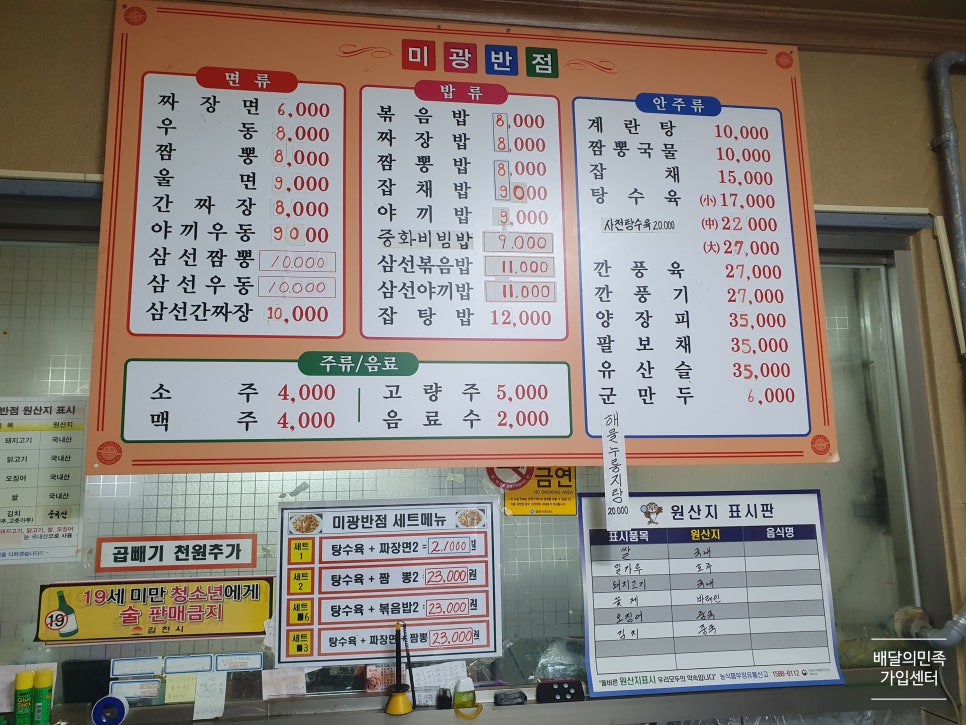 미광반점
면류
짜장면 6,000
우동 8,000
짬뽕 8,000
울면 9,000
간짜장 8,000
야끼우동 9000
삼선짬뽕 10,000
삼선우동 10,000
삼선간짜장 10,000
밥류
볶음밥 8,000
짜장밥 8,000
짬뽕밥 8,000
잡채밥 9000
야끼밥 9,000
중화비빔밥 9,000
삼선볶음밥 11,000
삼선야끼밥 11,000
잡탕밥 12,000
안주류
계란탕 10,000
짬뽕국물 10,000
잡채 15,000
탕수육 (小) 17,000
사천탕수육 20.000 (中) 22,000
(大) 27,000
깐풍육 27,000
깐풍기 27,000
양장피 35,000
팔보채 35,000
유산슬 35,000
군만두 6,000
해물누룽지탕
20,000
주류/음료
소주 4,000
고량주 5,000
맥주 4,000
음료수 2,000
반점 원산지 표시
목 원산지
돼지고기 국내산
닭고기 국내산
오징어 국내산
쌀 국내산
김치
곱빼기 천원추가
19세 미만 청소년에게
술 판매금지
19
김천시
금연
NO SMOKING AREA
미광반점 세트메뉴
세트 1 탕수육 + 짜장면2 = 21000원
세트 2 탕수육 + 짬뽕2 = 23,000원
세트 6 탕수육 + 볶음밥2 = 23,000원
세트 3 탕수육 + 짜장면+짬뽕 23,000원
원산지 표시판
표시품목 원산지 음식명
쌀 국내
밀가루 호주
돼지고기 국내
꽃게 바레인
오징어 중국
김치 중국
"올바른 원산지표시 우리모두의 약속입니다" 농식품부정유통신고 : 1588-8112
배달의민족
가입센터